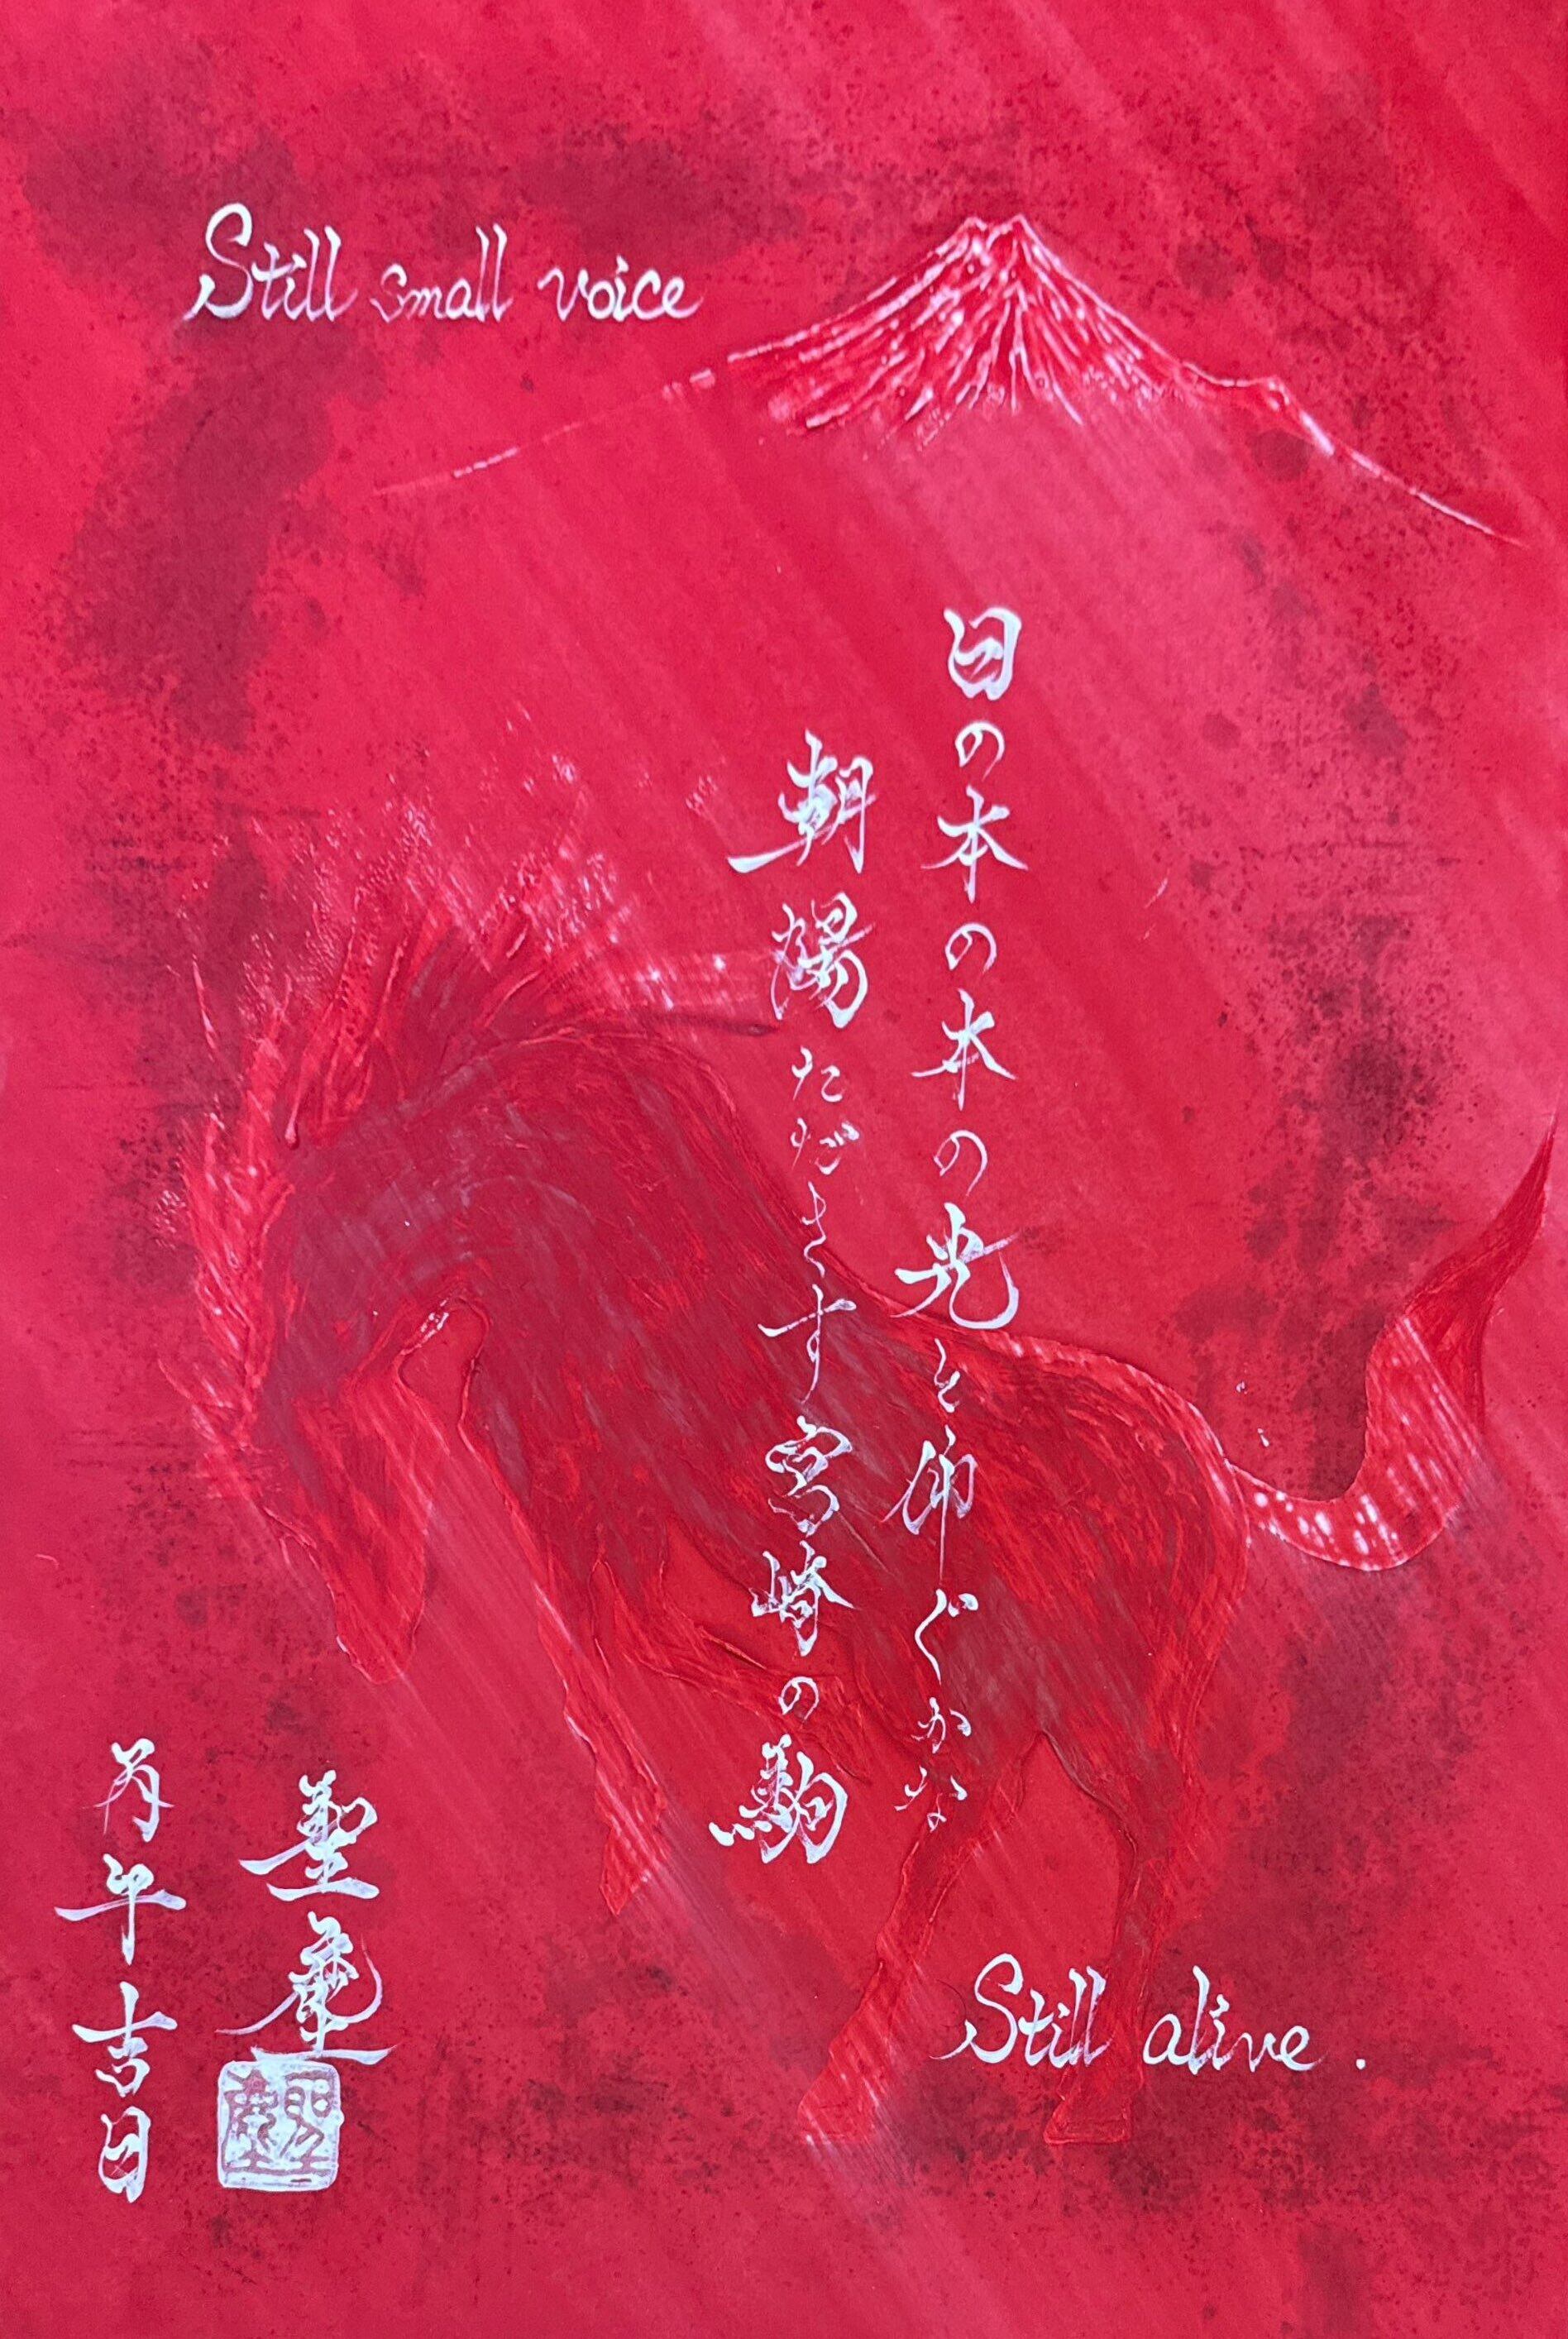 Still small voice
日の本の本の光と仰ぐかな
朝陽たださす宮崎の駒
Still alive.
聖
丙午吉日